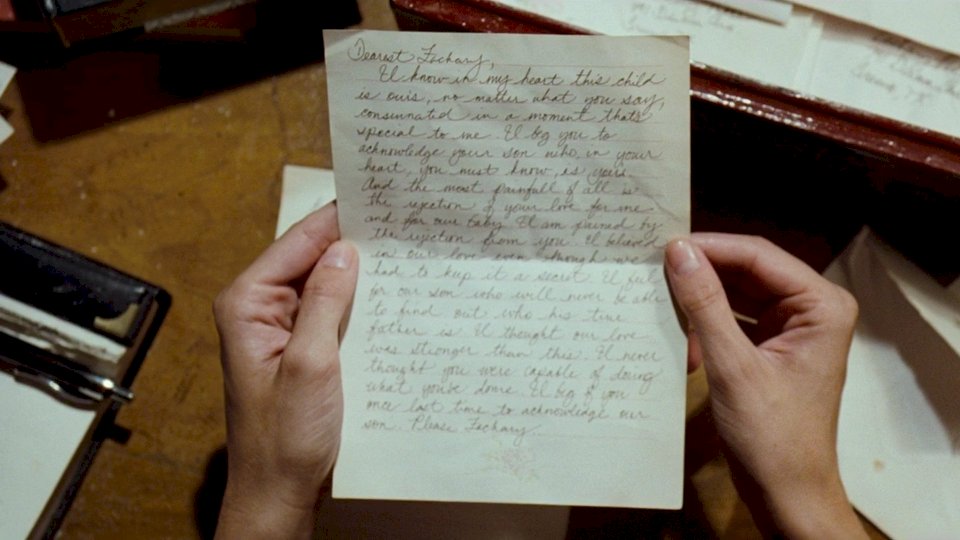 Dearest Zechary,
I know in my heart this child
is ours, no matter what you say,
consumated in a moment thats
special to me. I beg you to
acknowledge your son who, in your
heart, you must know, is yours.
And the most painfull of all is
the rejection of your love for me
and for our baby. I am pained by
the rejection from you. I believed
in our love even though we
had to keep it a secret. I feel
for our son who will never be able
to find out who his true
father is. I thought our love
was stronger than this. I never
thought you were capable of doing
what you've done. I beg of you
once last time to acknowledge our
son. Please Zechary.